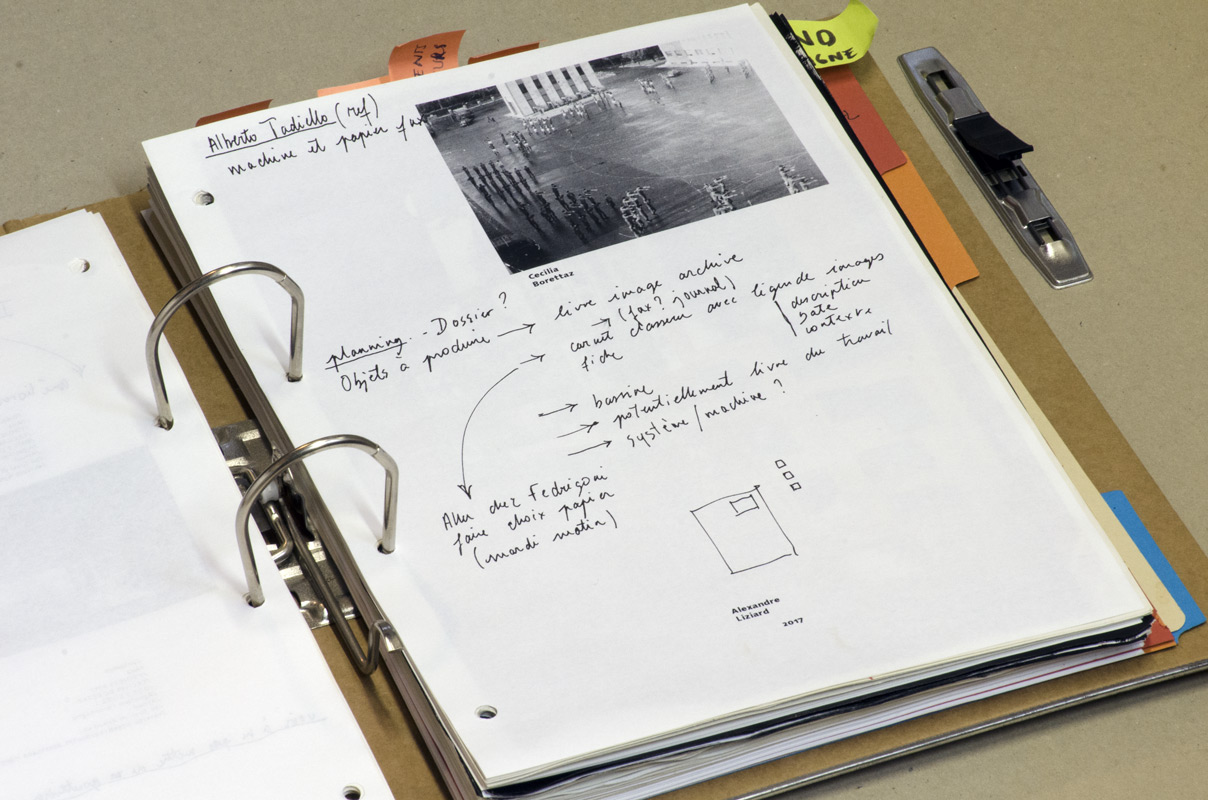 NO
GNE
ENTS
URS
Alberto Tadiello (ref)
machine et papier fax
Cecilia
Borettaz
planning - Dossier?
Objets à produire → livre image archive
→ (fax? journal)
→ carnet classeur avec légende images
fiche
description
date
contexte
→ bassine
→ potentiellement livre du travail
→ système/machine ?
Aller chez Fedrigoni
faire choix papier
(mardi matin)
Alexandre
Liziard
2017